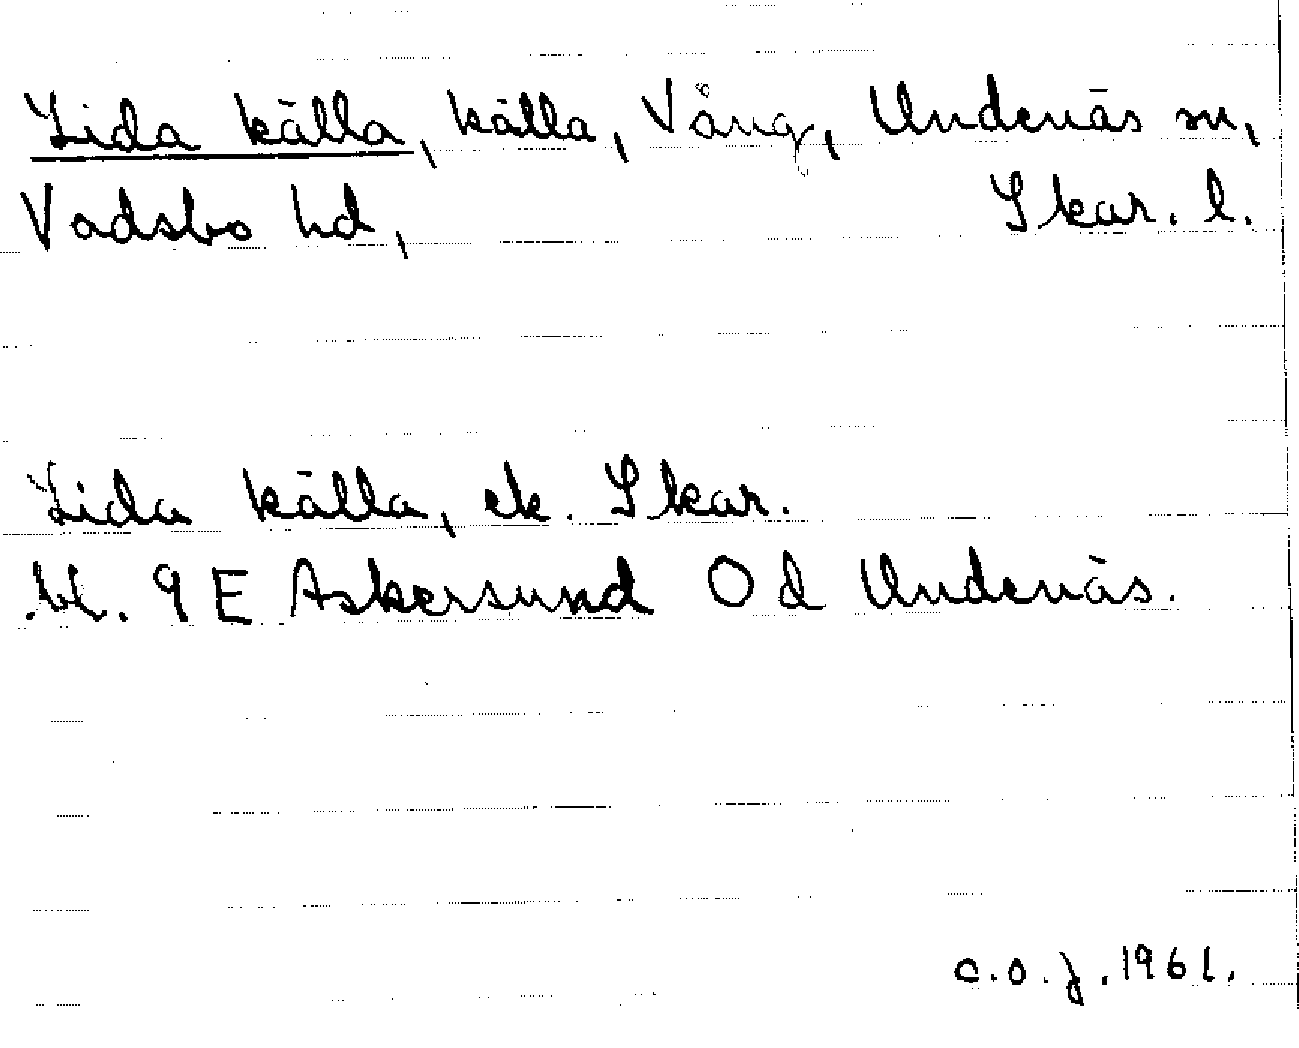 Lida källa, källa, Vång, Undenäs sn,
Vadsbo hd, Skar. l.
Lida källa, ek. Skar.
bl. 9 E Askersund 0 d Undenäs.
c.o.j. 1961.